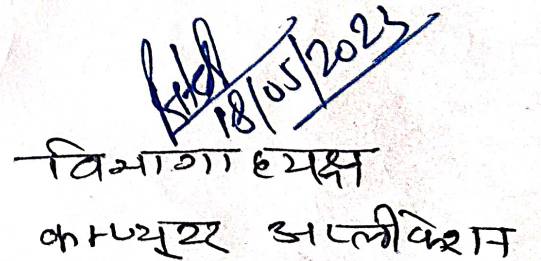 18/05/2023
विभागाध्यक्ष
कम्प्यूटर अप्लीकेशन